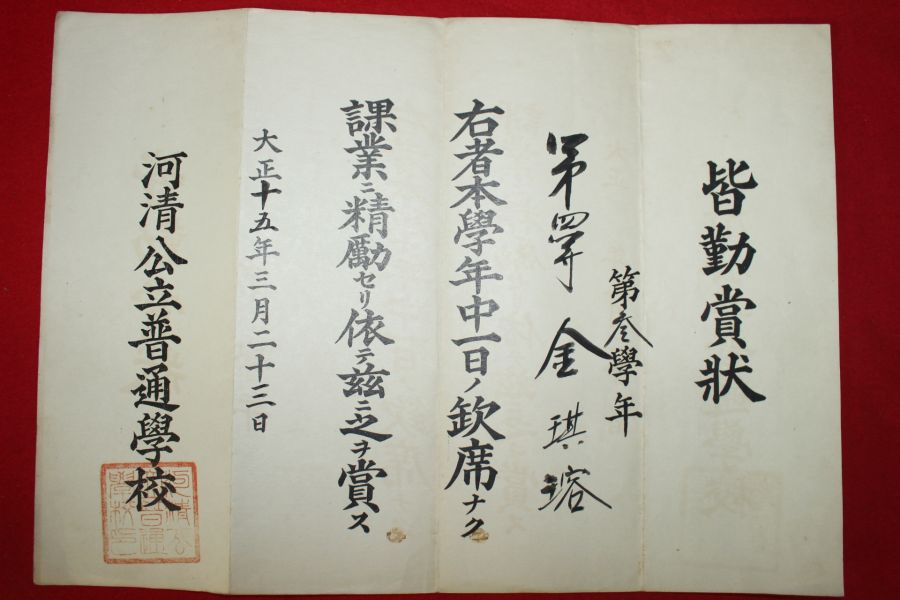 皆勤賞狀
第叄學年
第四等 金琪瑢
右者本學年中一日ノ欽席ナク
課業ニ精勵セリ依テ茲ニ之ヲ賞ス
大正十五年三月二十三日
河清公立普通學校